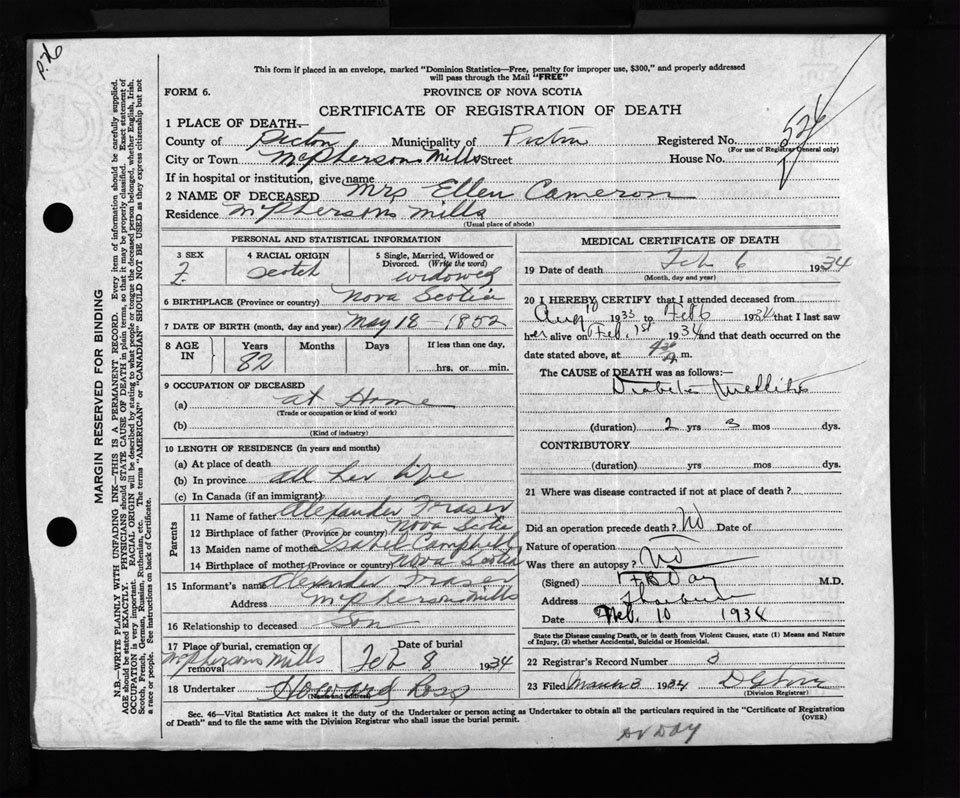 P.26
This form if placed in an envelope, marked "Dominion Statistics—Free, penalty for improper use, $300," and properly addressed
will pass through the Mail "FREE"
FORM 6.
PROVINCE OF NOVA SCOTIA
CERTIFICATE OF REGISTRATION OF DEATH
526
1 PLACE OF DEATH—
County of Pictou Municipality of Pictou Registered No.
(For use of Registrar General only)
City or Town McPhersons Mills Street House No.
If in hospital or institution, give name
2 NAME OF DECEASED Mrs Ellen Cameron
Residence McPhersons Mills
(Usual place of abode)
PERSONAL AND STATISTICAL INFORMATION
3 SEX F.
4 RACIAL ORIGIN Scotch
5 Single, Married, Widowed or
Divorced. (Write the word)
widowed
6 BIRTHPLACE (Province or country) Nova Scotia
7 DATE OF BIRTH (month, day and year) May 18 - 1852
8 AGE IN Years Months Days If less than one day,
82 hrs. or min.
9 OCCUPATION OF DECEASED
(a) at Home
(Trade or occupation or kind of work)
(b)
(Kind of industry)
10 LENGTH OF RESIDENCE (in years and months)
(a) At place of death
(b) In province all her life
(c) In Canada (if an immigrant)
Parents
11 Name of father Alexander Fraser
12 Birthplace of father (Province or country) Nova Scotia
13 Maiden name of mother Isabel Campbell
14 Birthplace of mother (Province or country) Nova Scotia
15 Informant's name Alexander Fraser
Address McPhersons Mills
16 Relationship to deceased Son
17 Place of burial, cremation or removal McPhersons Mills Date of burial Feb 8 1934
18 Undertaker Howard Ross
(Name and address)
MEDICAL CERTIFICATE OF DEATH
19 Date of death Feb 6 1934
(Month, day and year)
20 I HEREBY CERTIFY that I attended deceased from
Aug 10 1933 to Feb 6 1934 that I last saw
her alive on Feb. 1st 1934 and that death occurred on the
date stated above, at A m.
The CAUSE of DEATH was as follows:—
Diabetes Mellitus
(duration) 2 yrs 3 mos dys.
CONTRIBUTORY
(duration) yrs mos dys.
21 Where was disease contracted if not at place of death?
Did an operation precede death? No Date of
Nature of operation
Was there an autopsy? No
(Signed) F B Day M.D.
Address Thorburn
Date Feb. 10 1934
State the Disease causing Death, or in death from Violent Causes, state (1) Means and Nature
of Injury, (2) whether Accidental, Suicidal or Homicidal.
22 Registrar's Record Number 3
23 Filed March 3 1934
(Division Registrar)
Sec. 46—Vital Statistics Act makes it the duty of the Undertaker or person acting as Undertaker to obtain all the particulars required in the "Certificate of Registration
of Death" and to file the same with the Division Registrar who shall issue the burial permit.
(OVER)
MARGIN RESERVED FOR BINDING
N.B.—WRITE PLAINLY WITH UNFADING INK—THIS IS A PERMANENT RECORD. Every item of information should be carefully supplied.
AGE should be stated EXACTLY. PHYSICIANS should STATE CAUSE OF DEATH in plain terms, so that it may be properly classified. Exact statement of
OCCUPATION is very important. RACIAL ORIGIN will be described by stating to what people or tongue the deceased person belonged, whether English, Irish,
Scotch, French, German, Russian, Ruthenian, etc. The terms "AMERICAN" or "CANADIAN" SHOULD NOT BE USED as they express citizenship but not
a race or people. See instructions on back of Certificate.